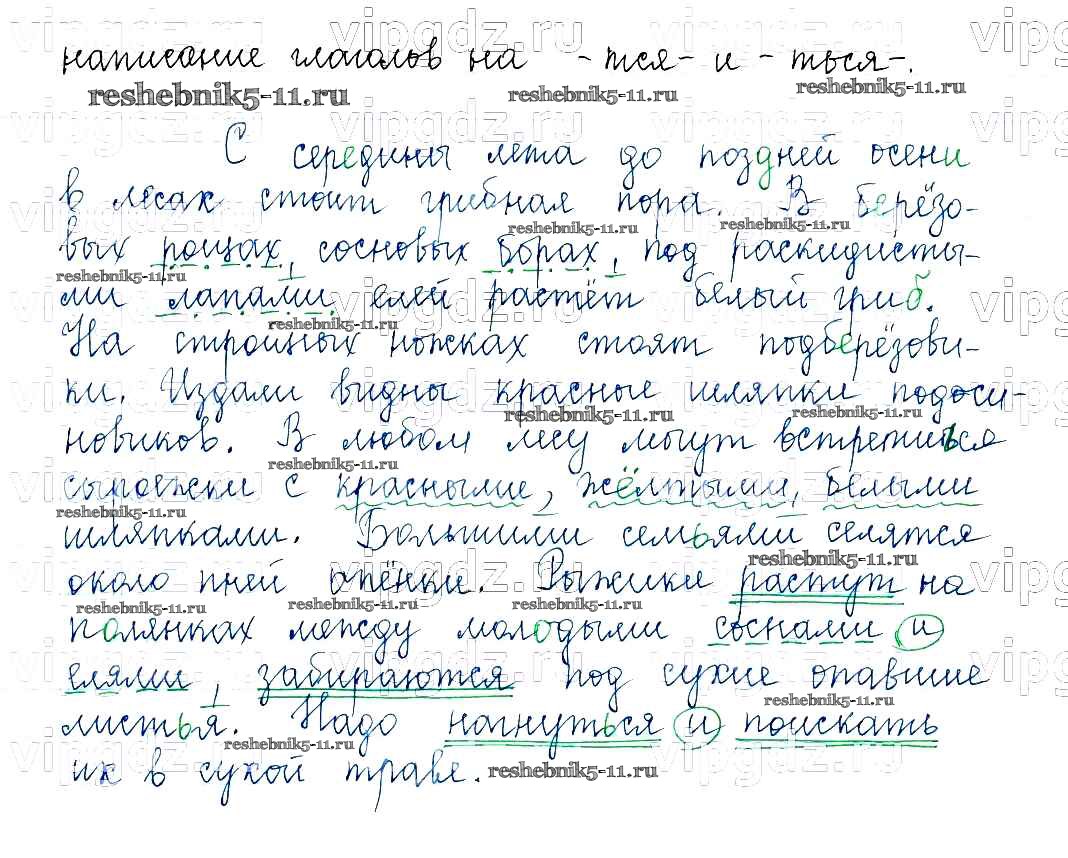 написание глаголов на -тся- и -ться-.
С середины лета до поздней осени
в лесах стоит грибная пора. В берёзо-
вых рощах, сосновых борах, под раскидисты-
ми лапами елей растёт белый гриб.
На стройных ножках стоят подберёзови-
ки. Издали видны красные шляпки подоси-
новиков. В любом лесу могут встретиться
сыроежки с красными, жёлтыми, белыми
шляпками. Большими семьями селятся
около пней опёнки. Рыжики растут на
полянках между молодыми соснами и
елями, забираются под сухие опавшие
листья. Надо нагнуться и поискать
их в сухой траве.
vipgdz.ru
reshebnik5-11.ru